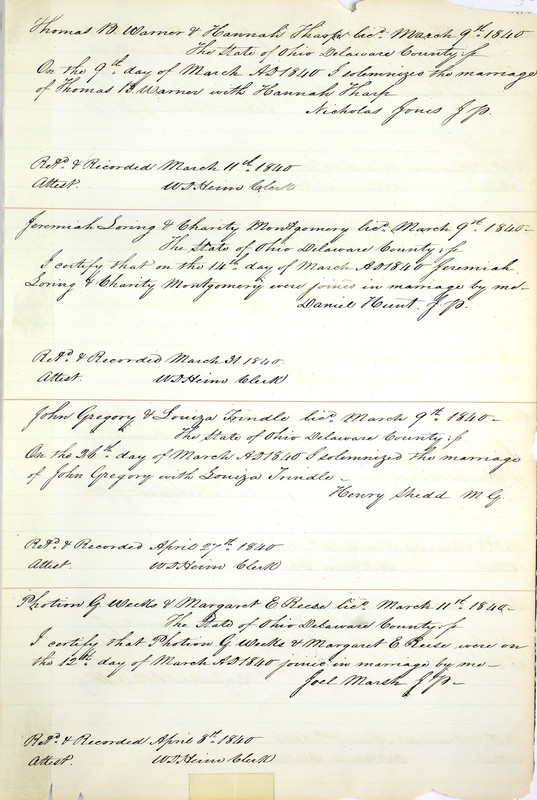 Thomas B. Warner & Hannah Tharp licd. March 9th. 1840
The State of Ohio Delaware County ss
On the 9th. day of March AD 1840 I solemnizes the marriage
of Thomas B. Warner with Hannah Tharp
Nicholas Jones J P.
Retd. & Recorded March 11th. 1840
Attest. W D Heim Clerk
Jeremiah Loring & Charity Montgomery licd. March 9th. 1840-
The State of Ohio Delaware County ss
I certify that on the 14th. day of March AD 1840 Jeremiah
Loring & Charity Montgomery were joined in marriage by me-
Daniel Hunt. J P.
Retd. & Recorded March 31. 1840.
Attest. W D Heim Clerk
John Gregory & Louiza Trindle licd. March 9th. 1840-
The State of Ohio Delaware County ss
On the 26th. day of March AD 1840 I solemnized the marriage
of John Gregory with Louiza Trindle-
Henry Shedd M G.
Retd. & Recorded April 27th. 1840
Attest. W D Heim Clerk
Photion G Weeks & Margaret E Reese licd. March 11th. 1840-
The State of Ohio Delaware County ss
I certify that Photion G. Weeks & Margaret E Reese were on
the 12th. day of March AD 1840 joined in marriage by me-
Joel Marsh J P-
Retd. & Recorded April 8th. 1840
Attest. W D Heim Clerk